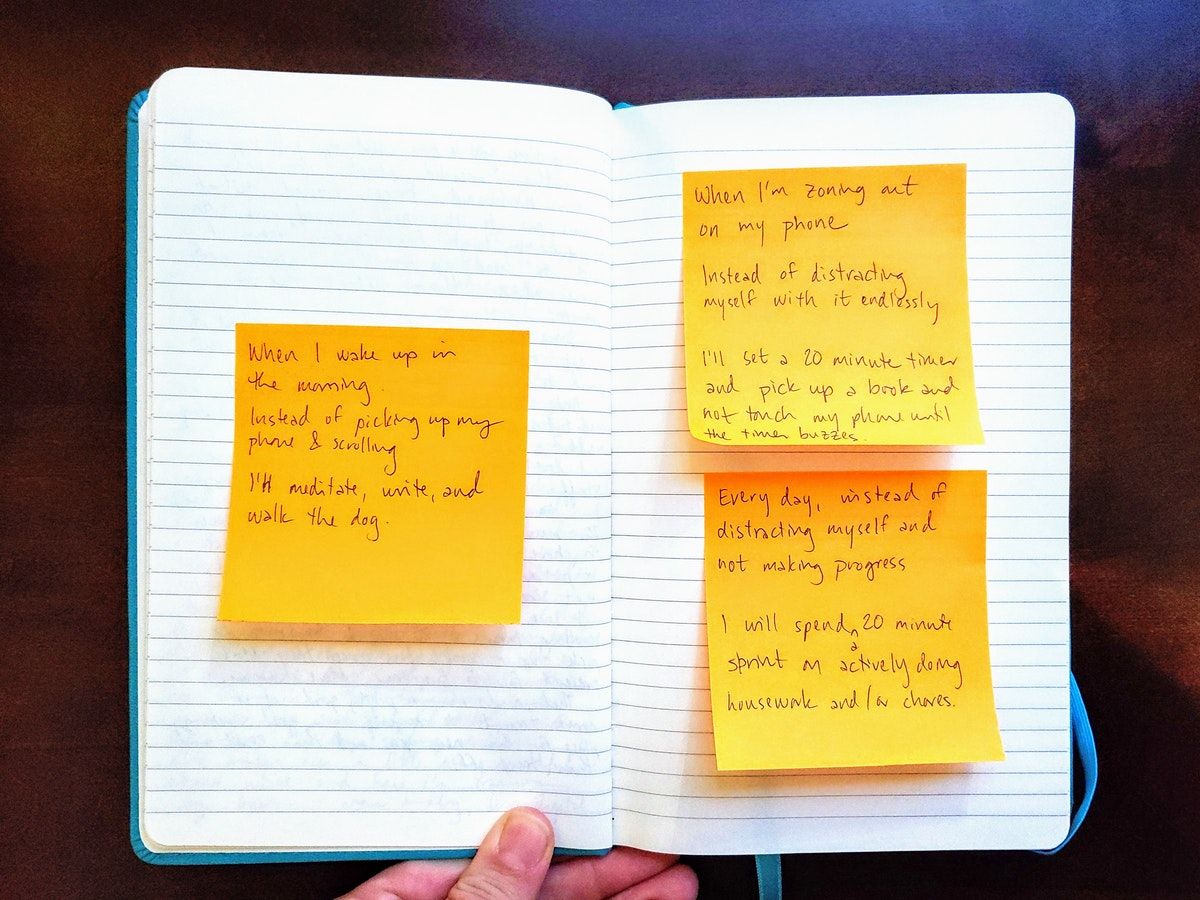 When I wake up in
the morning.
Instead of picking up my
phone & scrolling
I'll meditate, write, and
walk the dog.
When I'm zoning out
on my phone
Instead of distracting
myself with it endlessly
I'll set a 20 minute timer
and pick up a book and
not touch my phone until
the timer buzzes.
Every day, instead of
distracting myself and
not making progress
I will spend a 20 minute
sprint on actively doing
housework and/or chores.